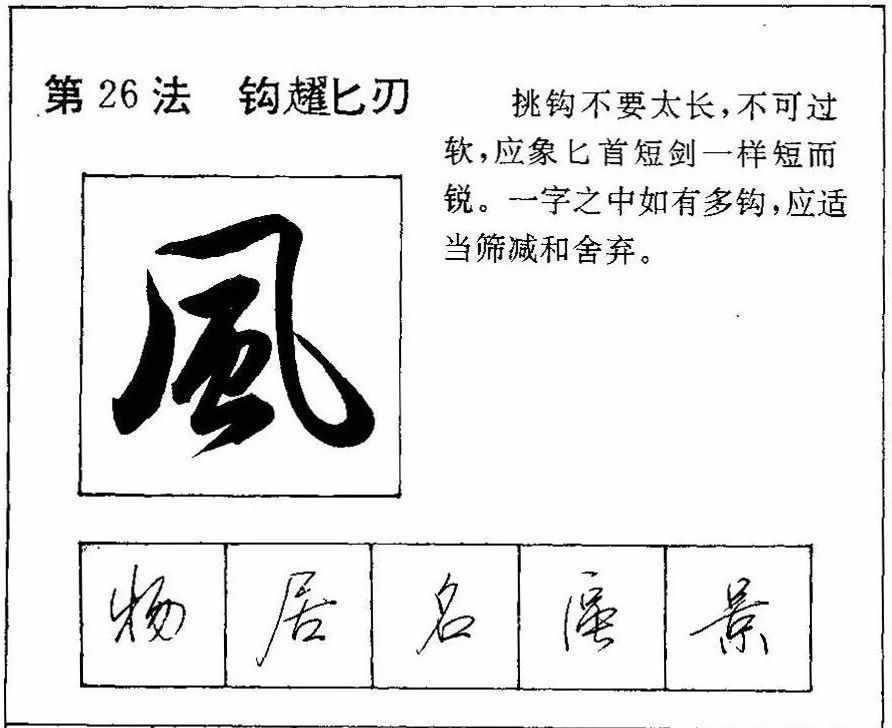 第26法 钩趯匕刃
挑钩不要太长,不可过
软,应象匕首短剑一样短而
锐。一字之中如有多钩,应适
当筛减和舍弃。
風
物 居 名 景